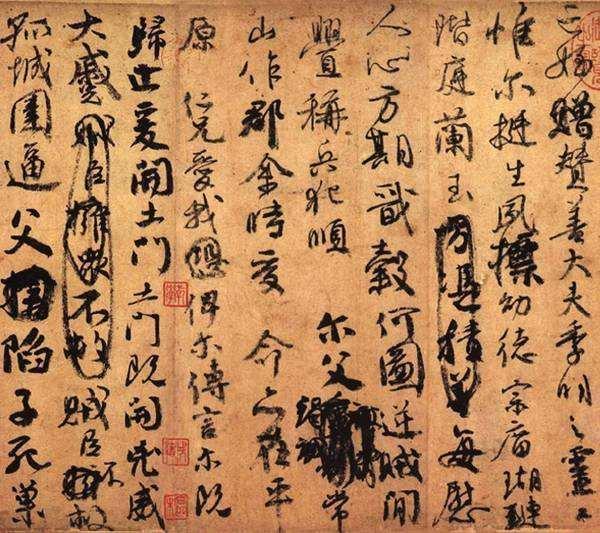 亡姪贈贊善大夫季明之靈曰
惟爾挺生夙標幼德宗廟瑚璉
階庭蘭玉方憑積善每慰
人心方期戩穀何圖逆賊間
釁稱兵犯順 爾父竭誠常
山作郡余時受 命亦在平
原 仁兄愛我恐俾爾傳言爾既
歸止爰開土門土門既開兇威
大蹙賊臣擁衆不救賊臣不救
孤城圍逼父陷子死巢